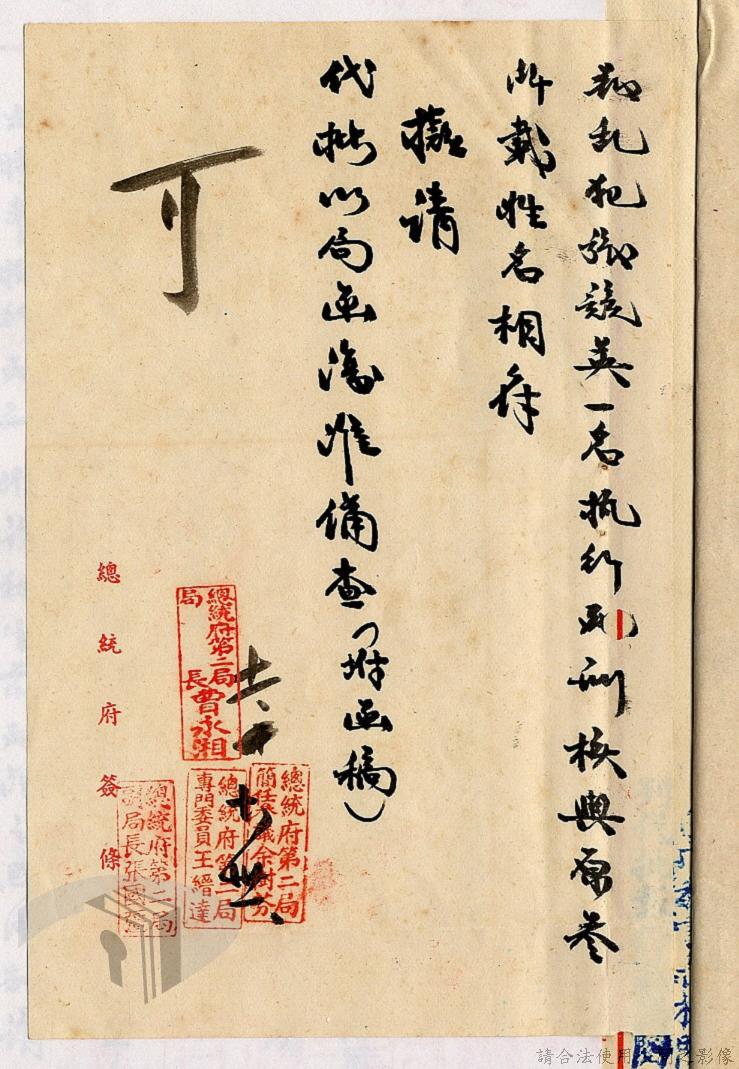 叛乱犯張競英一名执行死刑核與原卷
所載姓名相符
擬請
代批以局函復准備查(附函稿)
可
總統府第二局
局長曹永湘
十六
總統府第二局
余樹芬
總統府第二局
專門委員王縉達
總統府第二局
副局長張國
總統府簽條
請合法使用
之影像